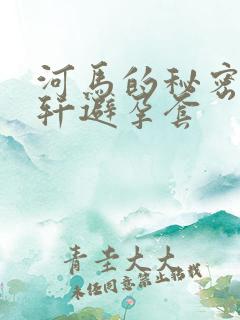 河马的秘密
轩避孕套
青圭大大
未经同意禁止转载